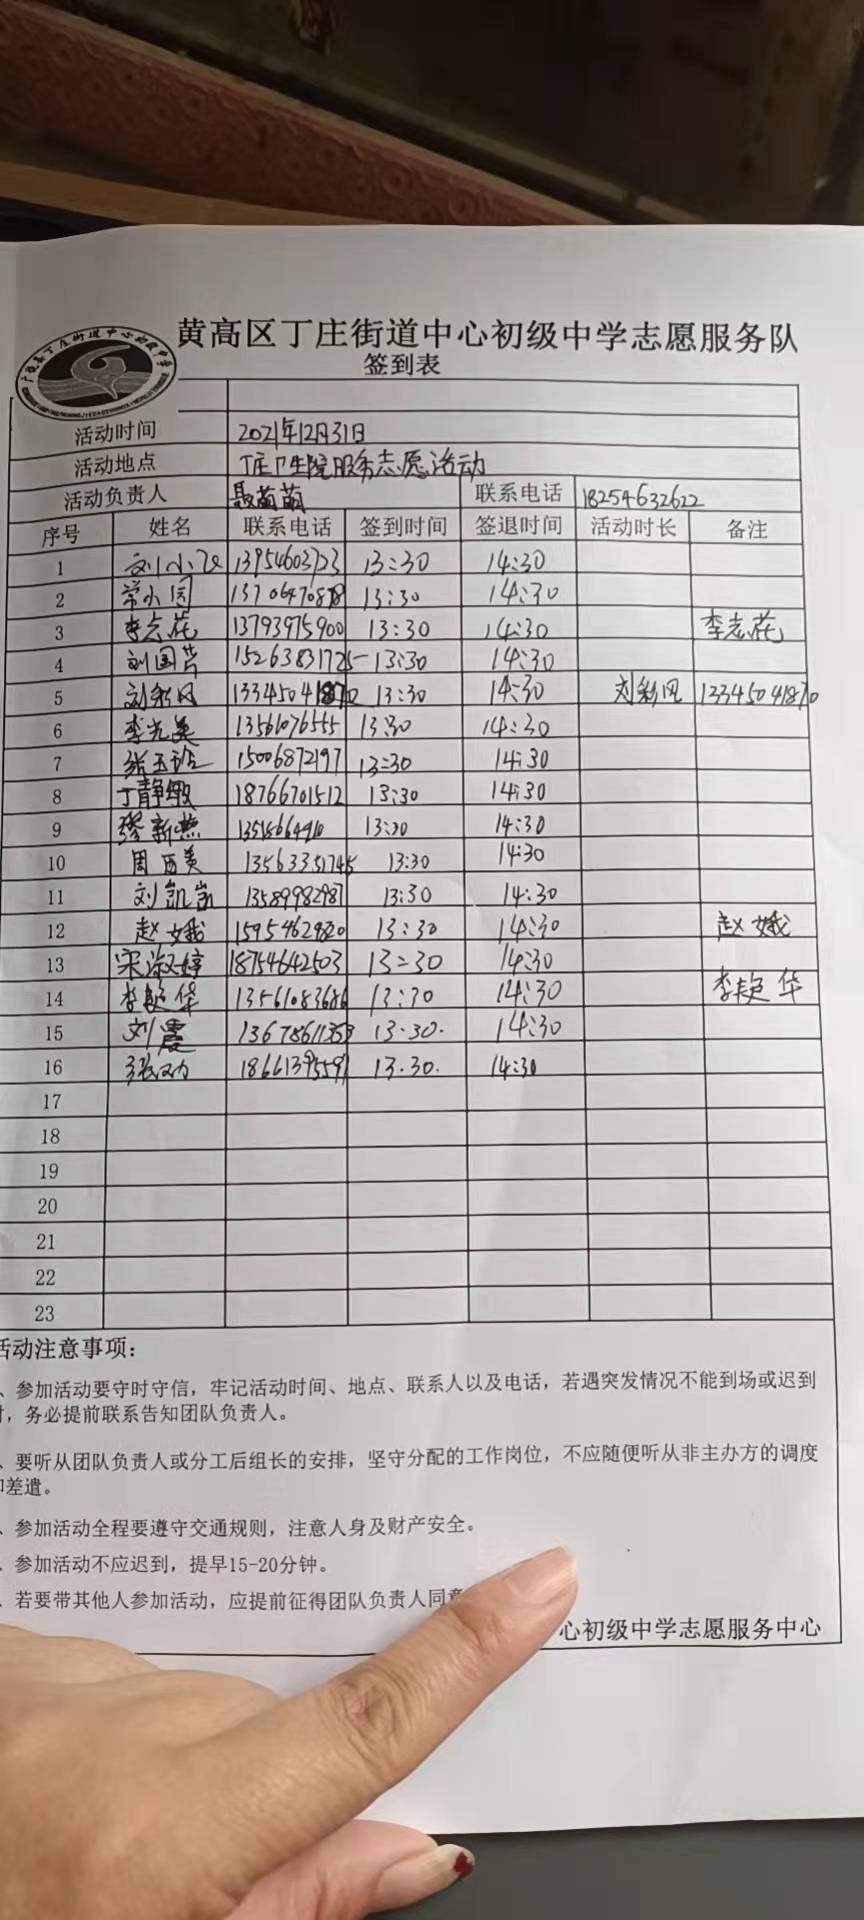 黄高区丁庄街道中心初级中学志愿服务队
签到表
活动时间 2021年12月31日
活动地点 丁庄卫生院服务志愿活动
活动负责人 聂萌萌 联系电话 18254632622
序号 姓名 联系电话 签到时间 签退时间 活动时长 备注
1 刘小飞 13954603723 13:30 14:30
2 常小园 13706470878 13:30 14:30
3 李志花 13793975900 13:30 14:30 李志花
4 刘国芳 15263831725 13:30 14:30
5 刘彩风 13345041870 13:30 14:30 刘彩风 13345041870
6 李光美 13561076555 13:30 14:30
7 张玉玲 15006872197 13:30 14:30
8 丁静敏 18766701512 13:30 14:30
9 缪新燕 13:30 14:30
10 周西美 13563351745 13:30 14:30
11 刘凯凯 13589982987 13:30 14:30
12 赵娥 15954629820 13:30 14:30 赵娥
13 宋淑婷 18754642503 13:30 14:30
14 李艳华 13561083686 13:30 14:30 李艳华
15 刘震 13678611353 13:30. 14:30
16 张双 18661395591 13.30. 14:30
17
18
19
20
21
22
23
活动注意事项:
、参加活动要守时守信，牢记活动时间、地点、联系人以及电话，若遇突发情况不能到场或迟到
时，务必提前联系告知团队负责人。
、要听从团队负责人或分工后组长的安排，坚守分配的工作岗位，不应随便听从非主办方的调度
和差遣。
、参加活动全程要遵守交通规则，注意人身及财产安全。
、参加活动不应迟到，提早15-20分钟。
、若要带其他人参加活动，应提前征得团队负责人同意
心初级中学志愿服务中心